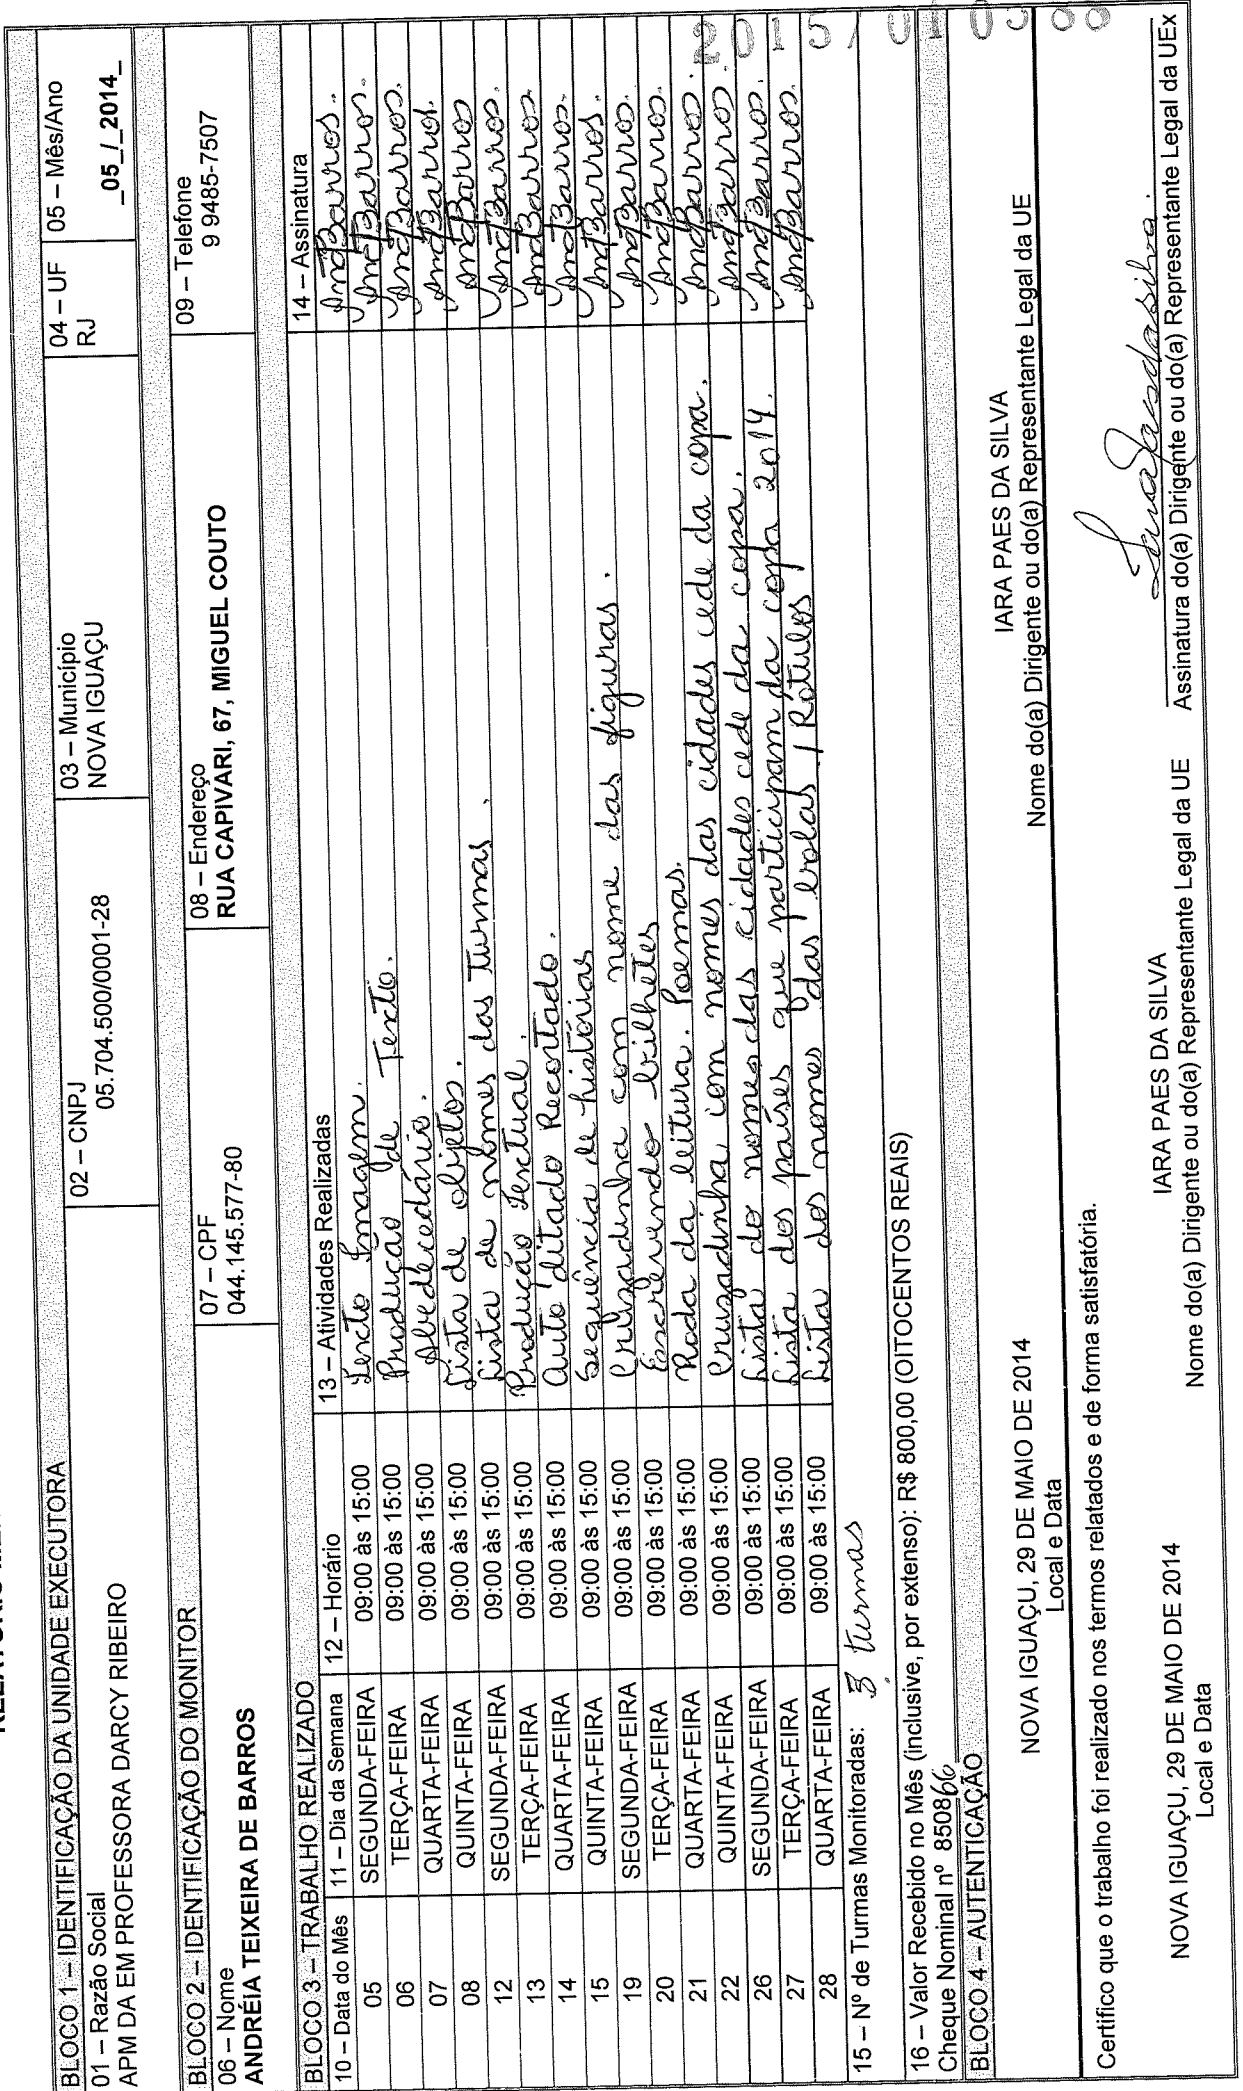 BLOCO 1 – IDENTIFICAÇÃO DA UNIDADE EXECUTORA
01 – Razão Social
APM DA EM PROFESSORA DARCY RIBEIRO
02 – CNPJ
05.704.500/0001-28
03 – Município
NOVA IGUAÇU
04 – UF
RJ
05 – Mês/Ano
_05_/_2014_
BLOCO 2 – IDENTIFICAÇÃO DO MONITOR
06 – Nome
ANDRÉIA TEIXEIRA DE BARROS
07 – CPF
044.145.577-80
08 – Endereço
RUA CAPIVARI, 67, MIGUEL COUTO
09 – Telefone
9 9485-7507
BLOCO 3 – TRABALHO REALIZADO
10 – Data do Mês 11 – Dia da Semana 12 – Horário 13 – Atividades Realizadas 14 – Assinatura
05 SEGUNDA-FEIRA 09:00 às 15:00 Texto Imagem. AndBarros.
06 TERÇA-FEIRA 09:00 às 15:00 Produção de Texto. AndBarros.
07 QUARTA-FEIRA 09:00 às 15:00 Abedecedário. AndBarros.
08 QUINTA-FEIRA 09:00 às 15:00 Lista de objetos. AndBarros.
12 SEGUNDA-FEIRA 09:00 às 15:00 Lista de nomes das Turmas. AndBarros
13 TERÇA-FEIRA 09:00 às 15:00 Produção Textual. AndBarros.
14 QUARTA-FEIRA 09:00 às 15:00 Auto ditado Recortado. AndBarros
15 QUINTA-FEIRA 09:00 às 15:00 Sequência de histórias AndBarros.
19 SEGUNDA-FEIRA 09:00 às 15:00 Cruzadinha com nome das figuras. AndBarros.
20 TERÇA-FEIRA 09:00 às 15:00 Escrevendo bilhetes AndBarros.
21 QUARTA-FEIRA 09:00 às 15:00 Roda da leitura. Poemas. AndBarros.
22 QUINTA-FEIRA 09:00 às 15:00 Cruzadinha com nomes das cidades cede da copa. AndBarros.
26 SEGUNDA-FEIRA 09:00 às 15:00 Lista do nomes das cidades cede da copa. AndBarros.
27 TERÇA-FEIRA 09:00 às 15:00 Lista dos países que participam da copa 2014. AndBarros.
28 QUARTA-FEIRA 09:00 às 15:00 Lista dos nomes das bolas / Rótulos AndBarros.
15 – Nº de Turmas Monitoradas: 3 turmas
16 – Valor Recebido no Mês (inclusive, por extenso): R$ 800,00 (OITOCENTOS REAIS)
Cheque Nominal nº 850866
BLOCO 4 – AUTENTICAÇÃO
NOVA IGUAÇU, 29 DE MAIO DE 2014
Local e Data
IARA PAES DA SILVA
Nome do(a) Dirigente ou do(a) Representante Legal da UE
Certifico que o trabalho foi realizado nos termos relatados e de forma satisfatória.
NOVA IGUAÇU, 29 DE MAIO DE 2014
Local e Data
IARA PAES DA SILVA
Nome do(a) Dirigente ou do(a) Representante Legal da UE
Iarapaesdasilva.
Assinatura do(a) Dirigente ou do(a) Representante Legal da UEx
2015/010